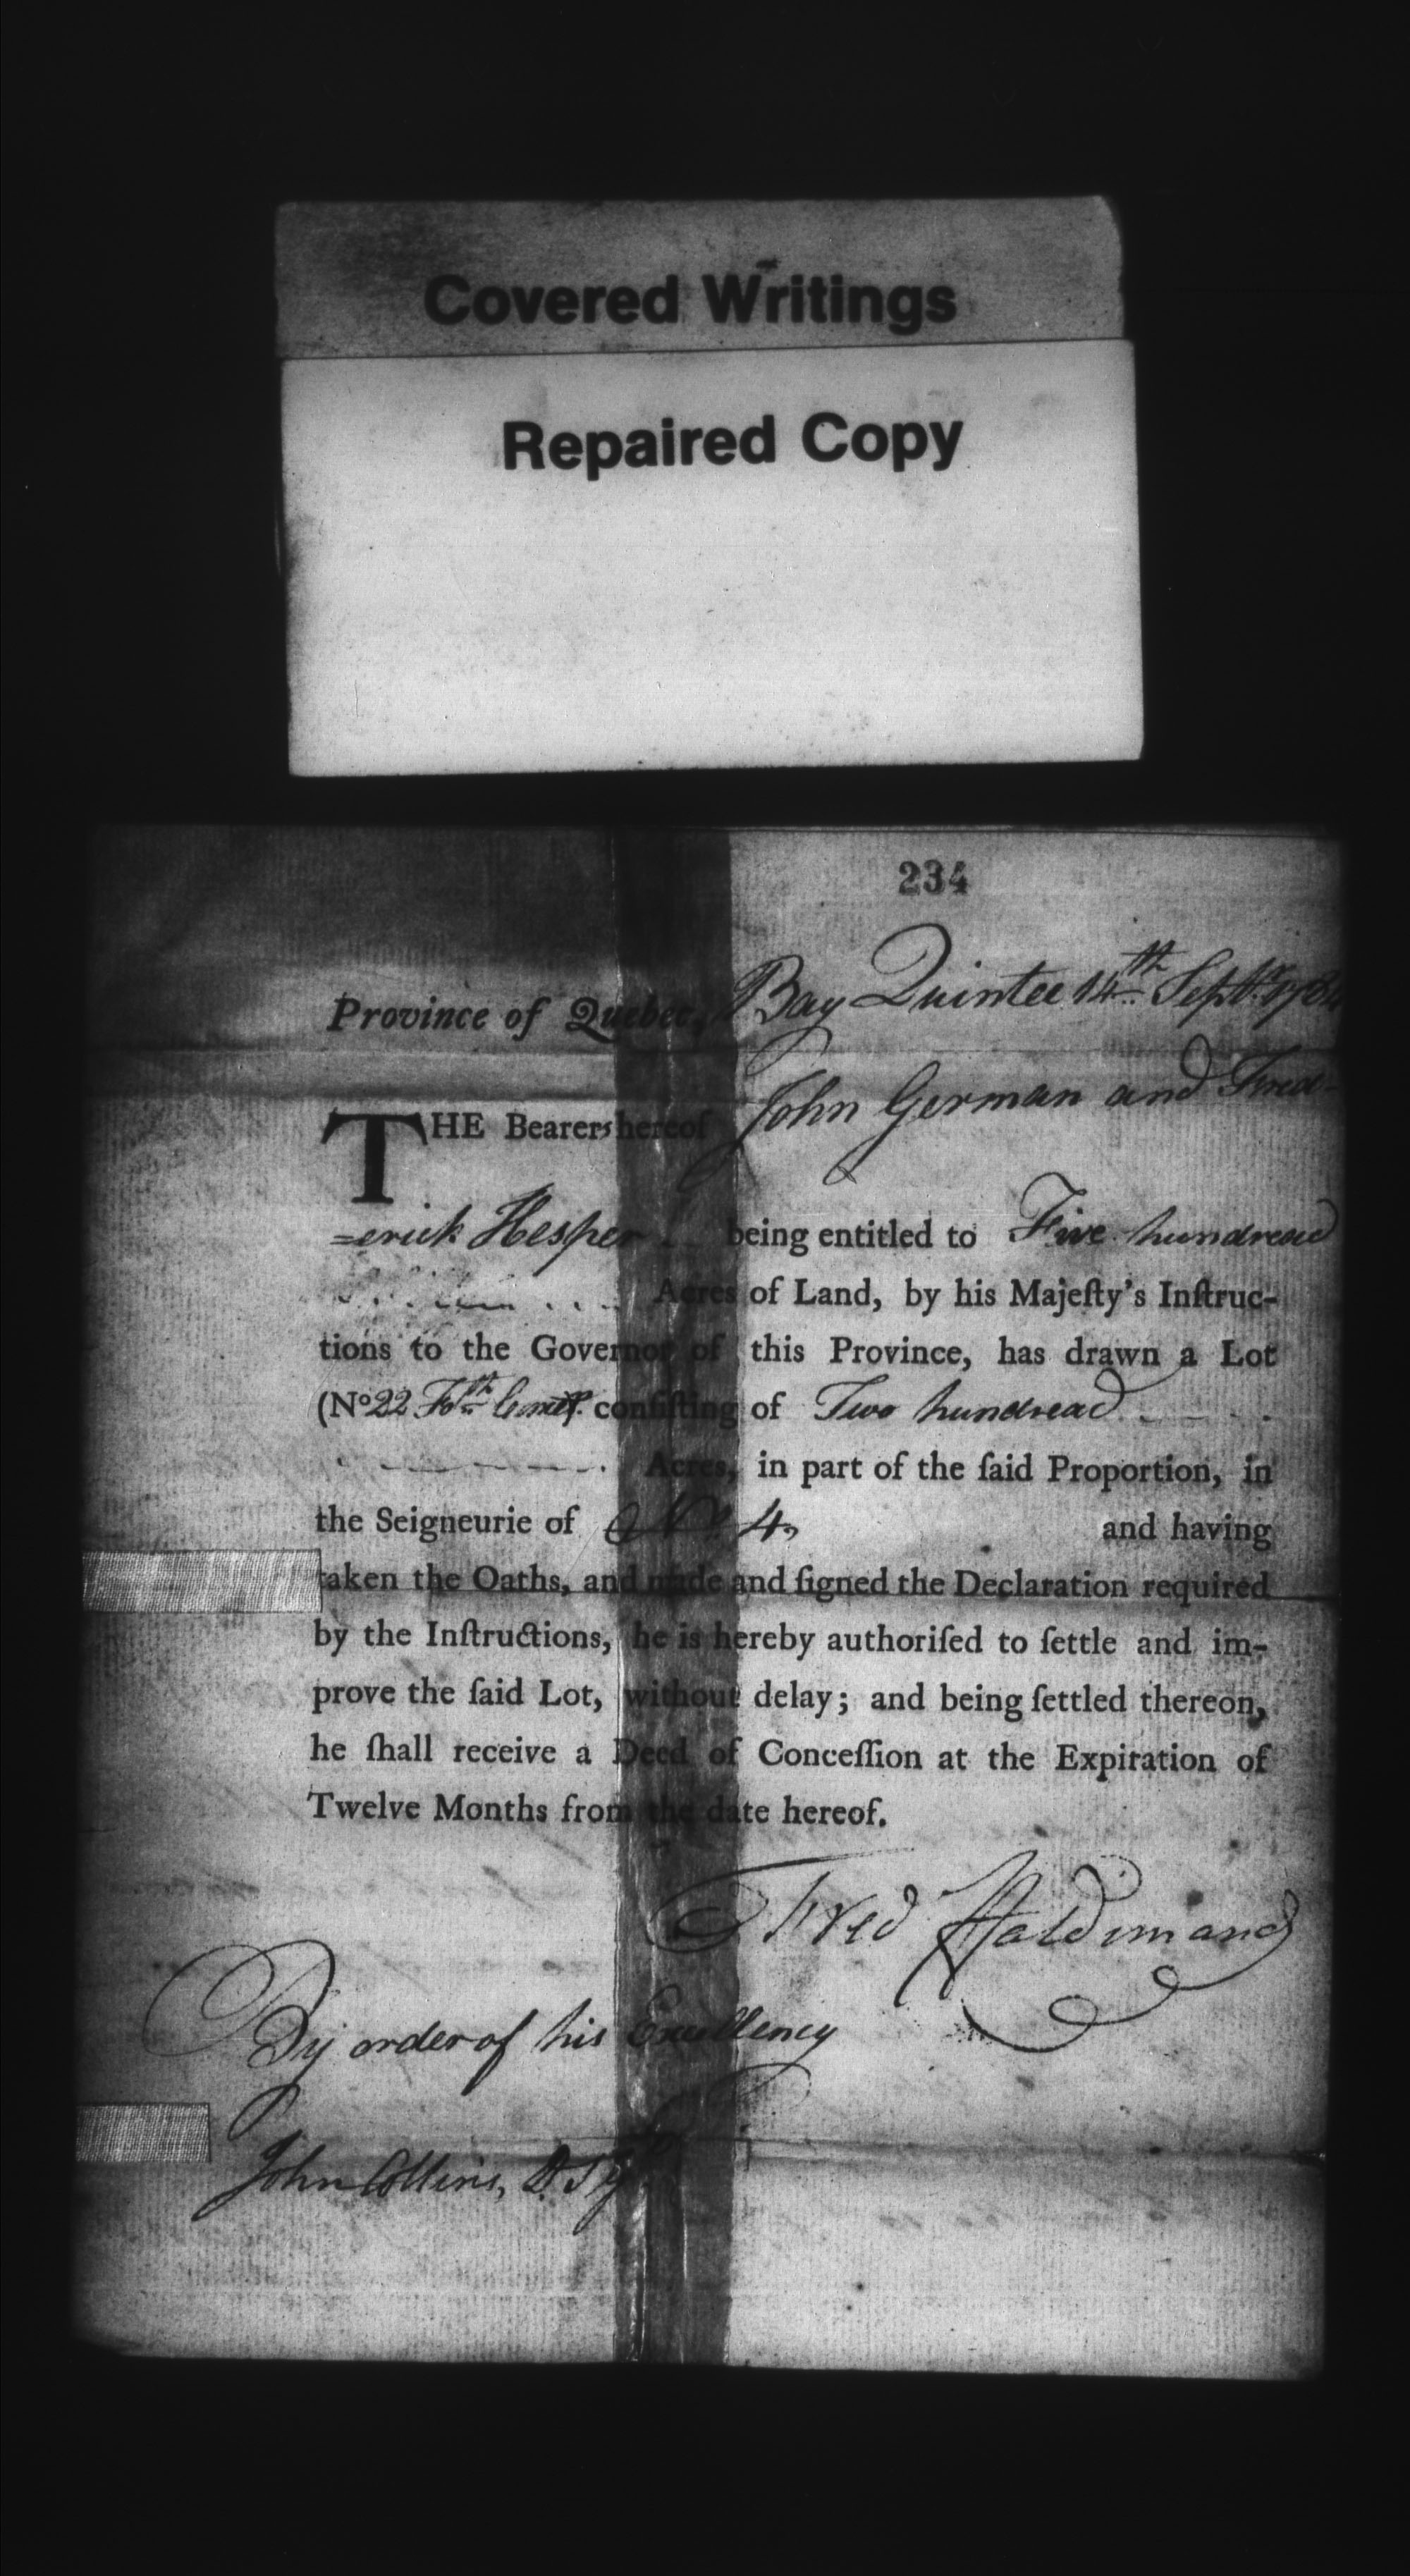 Covered Writings
Repaired Copy
234
Province of Quebec, Bay Quintee 14th Sept. 1784
THE Bearers hereof John German and Fred-
=erick Hesper being entitled to Five hundread
Acres of Land, by his Majeſty's Inſtruc-
tions to the Governor of this Province, has drawn a Lot
(No 22 Foth Conceſs. conſiſting of Two hundread
Acres, in part of the ſaid Proportion, in
the Seigneurie of No 4, and having
taken the Oaths, and made and ſigned the Declaration required
by the Inſtructions, he is hereby authoriſed to ſettle and im-
prove the ſaid Lot, without delay; and being ſettled thereon,
he ſhall receive a Deed of Conceſſion at the Expiration of
Twelve Months from the date hereof.
Fred Haldimand
By order of his Excellency
John Collins, D.